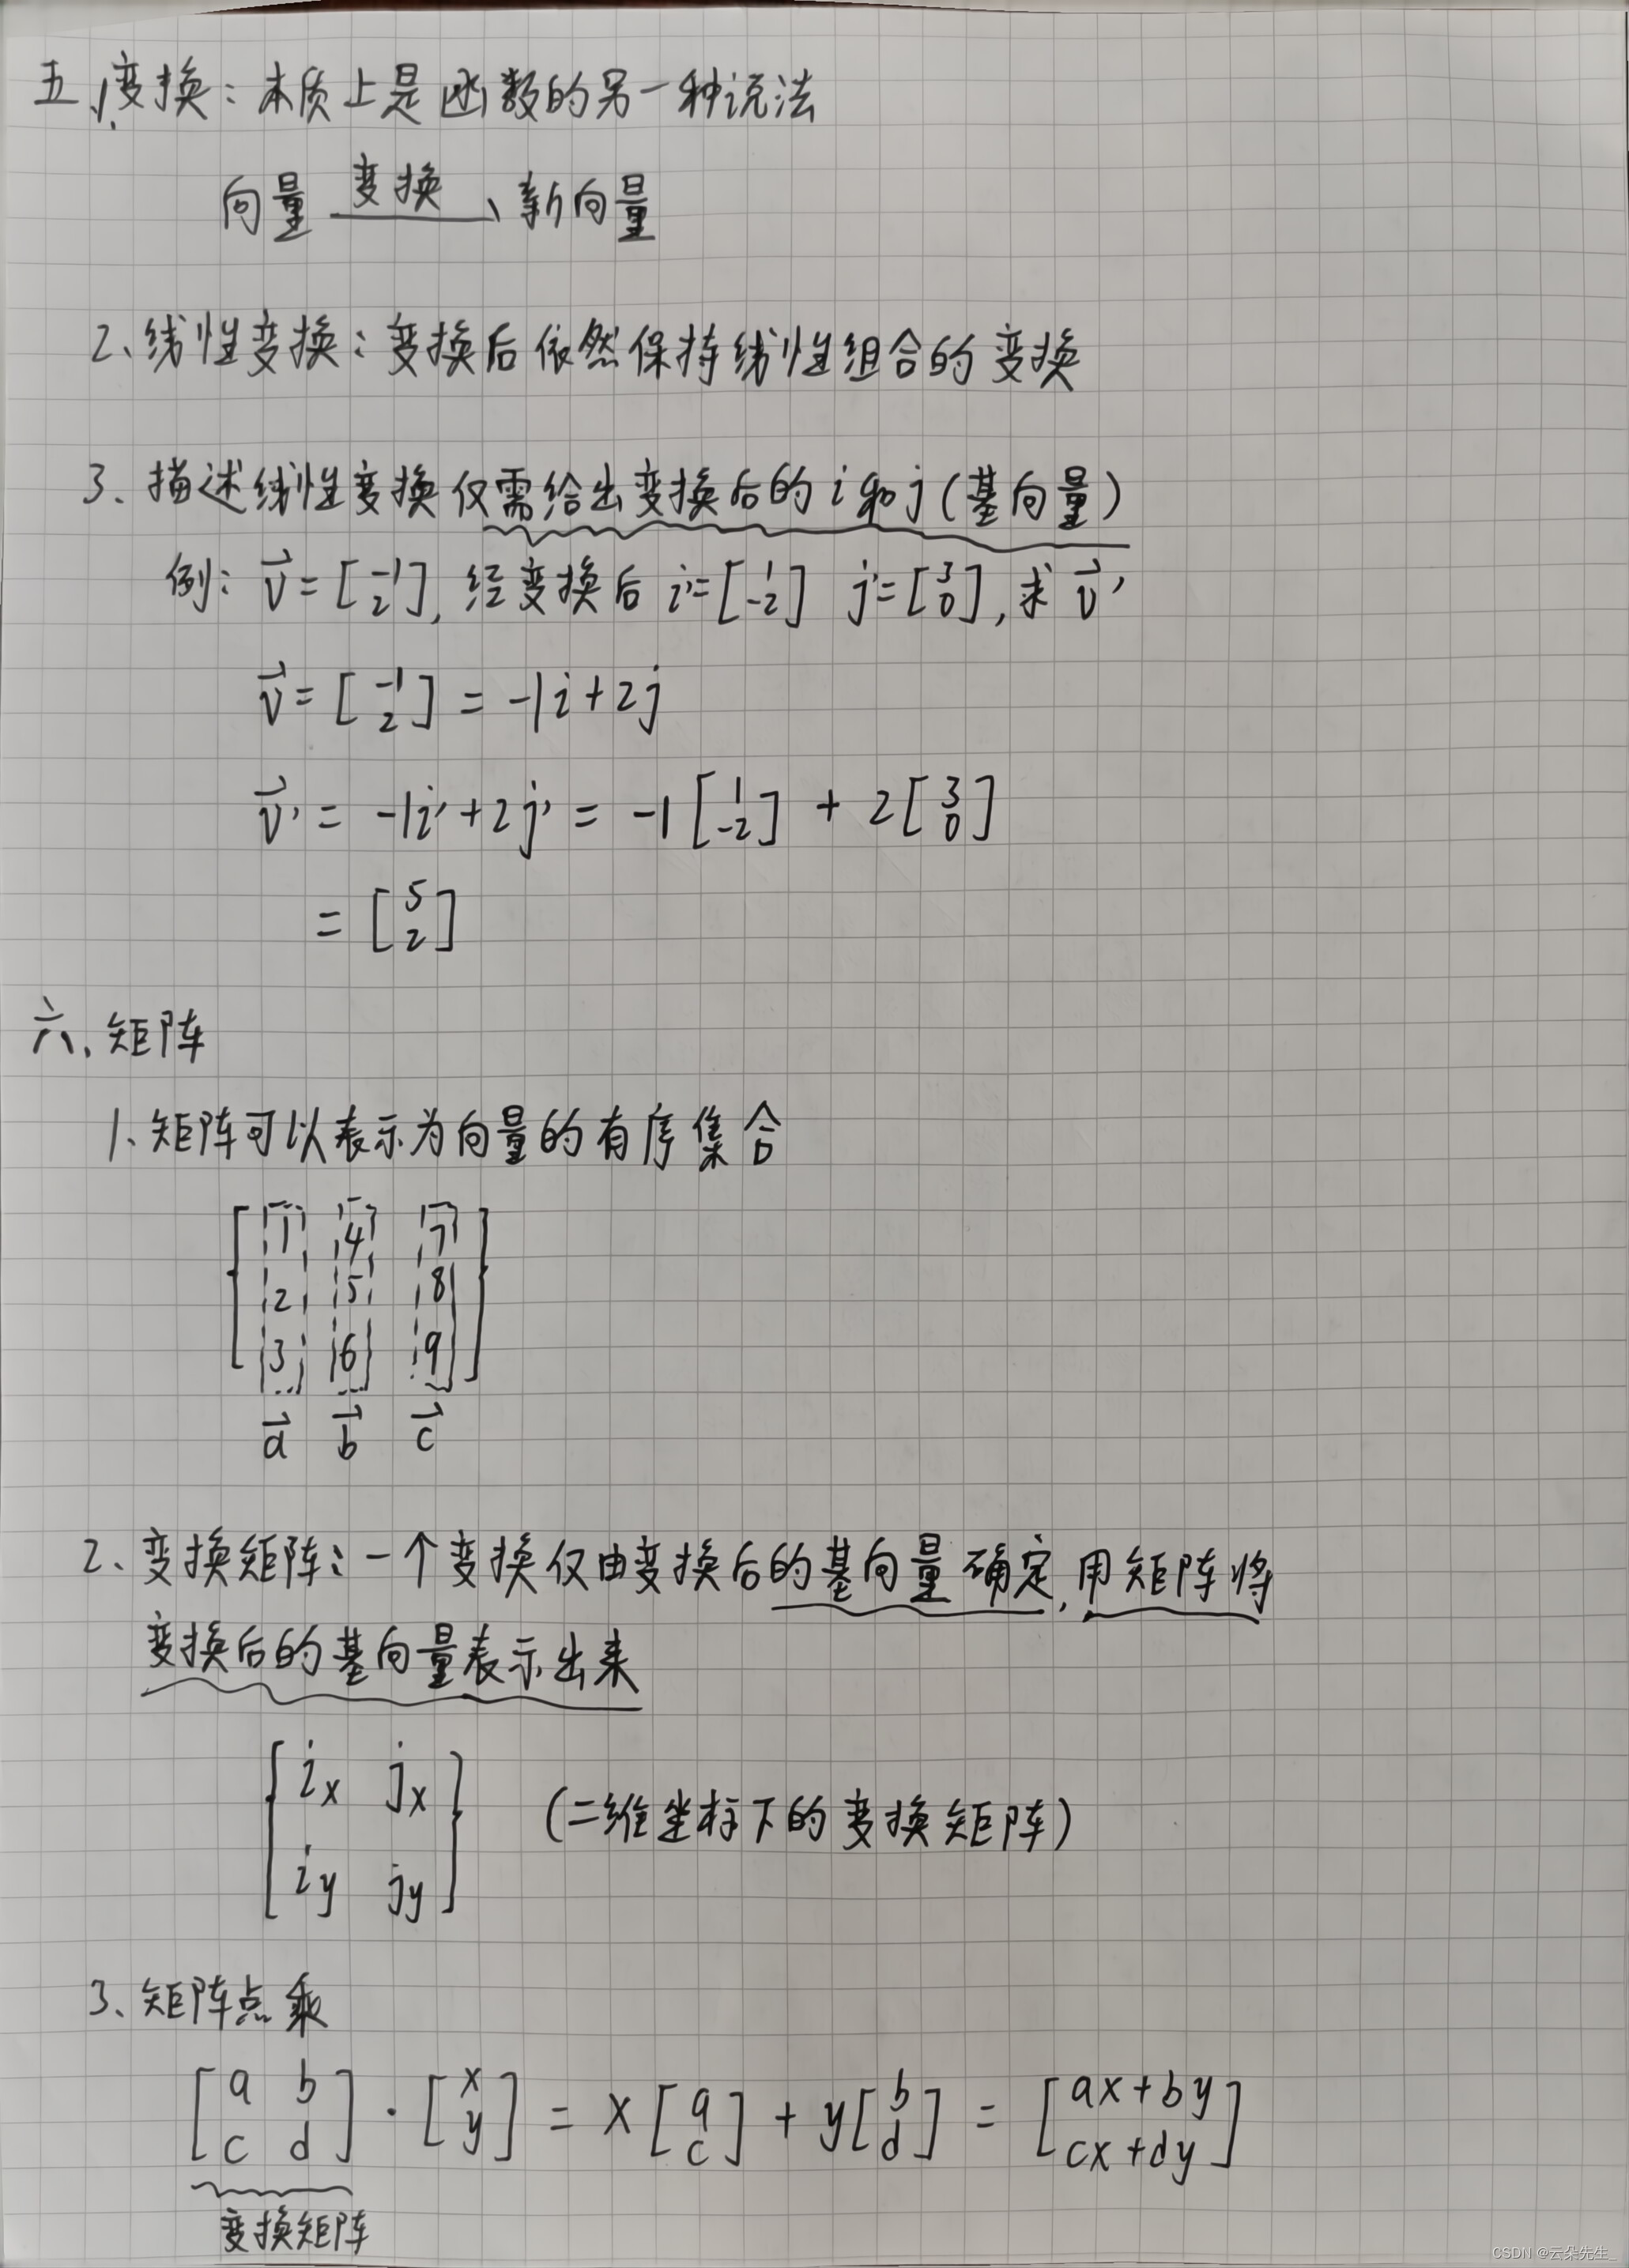 五、1、变换：本质上是函数的另一种说法
向量 变换 新向量
2、线性变换：变换后依然保持线性组合的变换
3、描述线性变换仅需给出变换后的i和j(基向量)
例：v⃗=[-1 2]，经变换后 i'=[1 -2] j'=[3 0]，求v⃗'
v⃗=[-1 2]=-1i+2j
v⃗'=-1i'+2j'=-1[1 -2]+2[3 0]
=[5 2]
六、矩阵
1、矩阵可以表示为向量的有序集合
1 4 7
2 5 8
3 6 9
a⃗ b⃗ c⃗
2、变换矩阵：一个变换仅由变换后的基向量确定，用矩阵将
变换后的基向量表示出来
ix jx
(二维坐标下的变换矩阵)
iy jy
3、矩阵点乘
[a b c d]·[x y]=x[a c]+y[b d]=[ax+by cx+dy]
变换矩阵
CSDN @云朵先生_